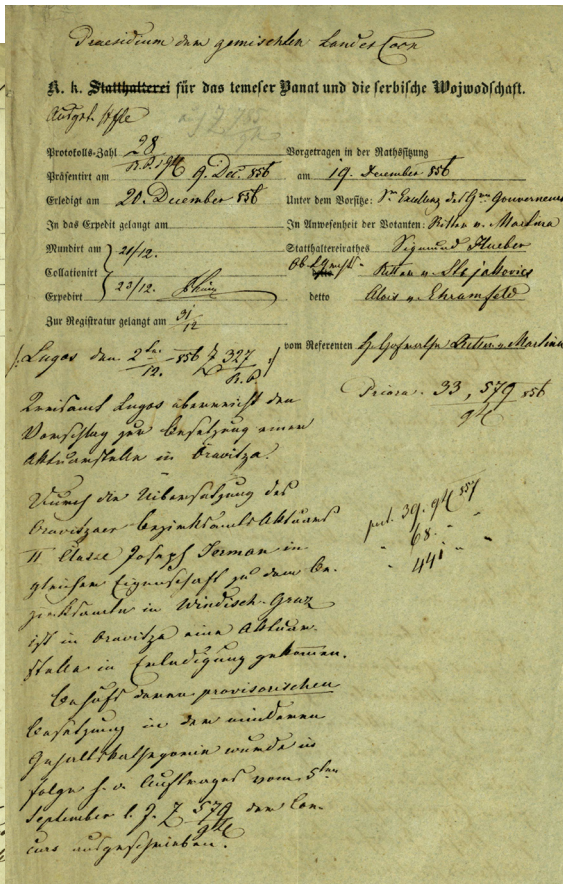 Praesidium der gemischten Landes Coon
K. k. Statthalterei für das temeser Banat und die serbische Wojwodschaft.
Protokolls-Zahl 28
Präsentirt am 9. Dec. 856
Erledigt am 20. Dezember 856
In das Expedit gelangt am
Mundirt am 21/12.
Collationirt
Expedirt 23/12.
Zur Registratur gelangt am 31/12
Vorgetragen in der Rathssitzung
am 19. Dezember 856
Unter dem Vorsitze: Sr Excelenz des Hrn Gouverneurs
In Anwesenheit der Votanten: Ritter v. Martina
Statthaltereirathes Sigmund Hueber
Ritter v. Stojakovics
detto Alois v. Ehramfeld
vom Referenten H. Hofrathe Ritter v. Martina
Lugos den 2ten/12. 856 Z 327
Priora. 33, 579 856
Kreisamt Lugos überreicht den
Vorschlag zur Besetzung einer
Aktuarstelle in Oravitza.
Durch die Uibersetzung des
Oravitzaer Bezirksamts Aktuars
II Classe Joseph Jerman in
gleicher Eigenschaft zu dem Be-
zirksamte in Windisch-Graz
ist in Oravitza eine Aktuar-
stelle in Erledigung gekommen.
Behufs deren provisorischen
Besetzung in der minderen
Gehaltskathegorie wurde in
folge h. o. Auftrages vom 5ten
September l. J. Z 579 der Con-
curs ausgeschrieben.
39. 857
68.
441